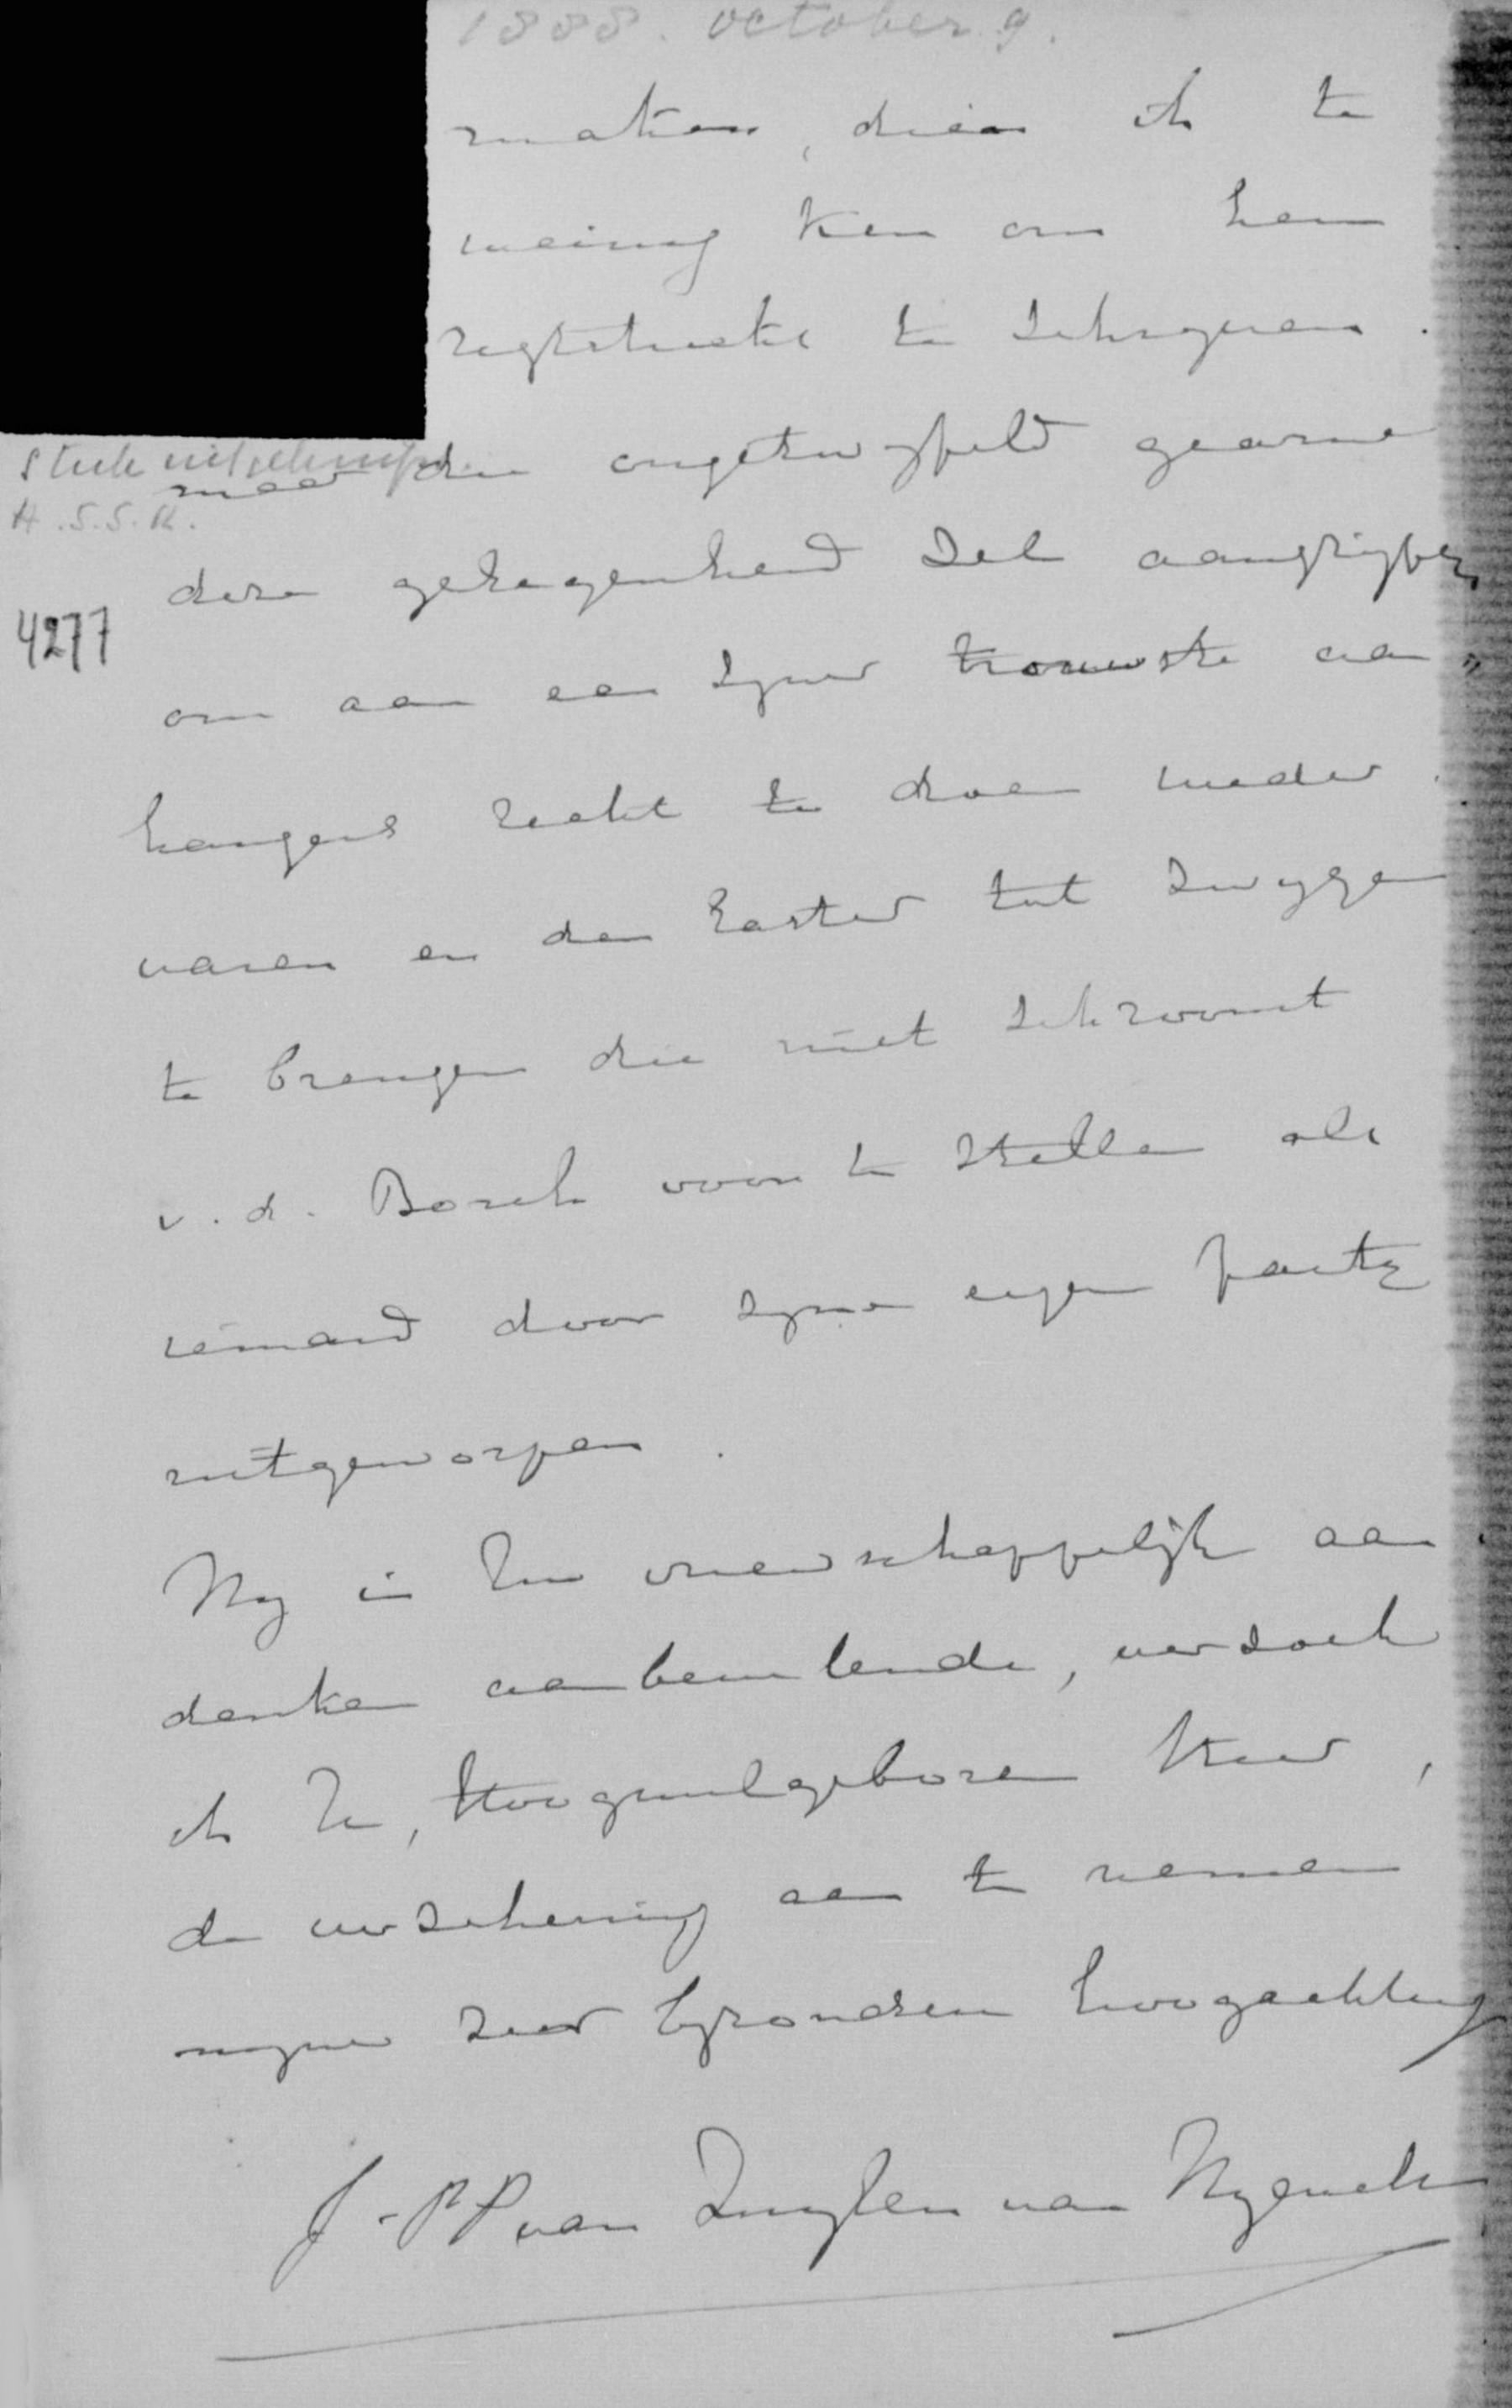 1888. october 9.
maken, dien ik te
weinig ken om hem
regtstreeks te schryven.
stuk uitgeknipt
H.S.S.R.
maar die ongetwyfeld gaarne
deze gelegenheid zal aangrijpen,
4277
om aan een zyner trouwste aan„
hangers recht te doen weder„
varen en den laster tot zwygen
te brengen die niet schroomt
v. d. Bosch voor te stellen als
iemand door zyne eigen party
uitgeworpen.
My in Uw vriendschappelijk aan„
denken aanbevelende, verzoek
ik U, Hoogwelgeboren Heer,
de verzekering aan te nemen
myner zeer byzondere hoogachting
J.P.P van Zuylen van Nyevelt